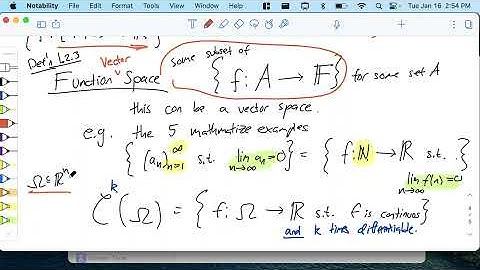 Notability Window Help
Tue Jan 16 2:54 PM
Def'n L2.3
Vector
Function Space
Some subset of { f: A → 𝔽 } for some set A
this can be a vector space.
e.g. the 5 mathmatize examples
{ (aₙ)ₙ₌₁^∞ s.t. lim n→∞ aₙ=0 } = { f: ℕ → ℝ s.t. lim n→∞ f(n)=0 }
Ω⊆ℝⁿ
C^k(Ω) = { f: Ω → ℝ s.t. f is continuos }
and k times differentiable.